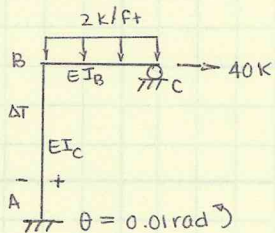 2 k/ft
B EI_B C 40K
ΔT
EI_C
- +
A
θ = 0.01rad